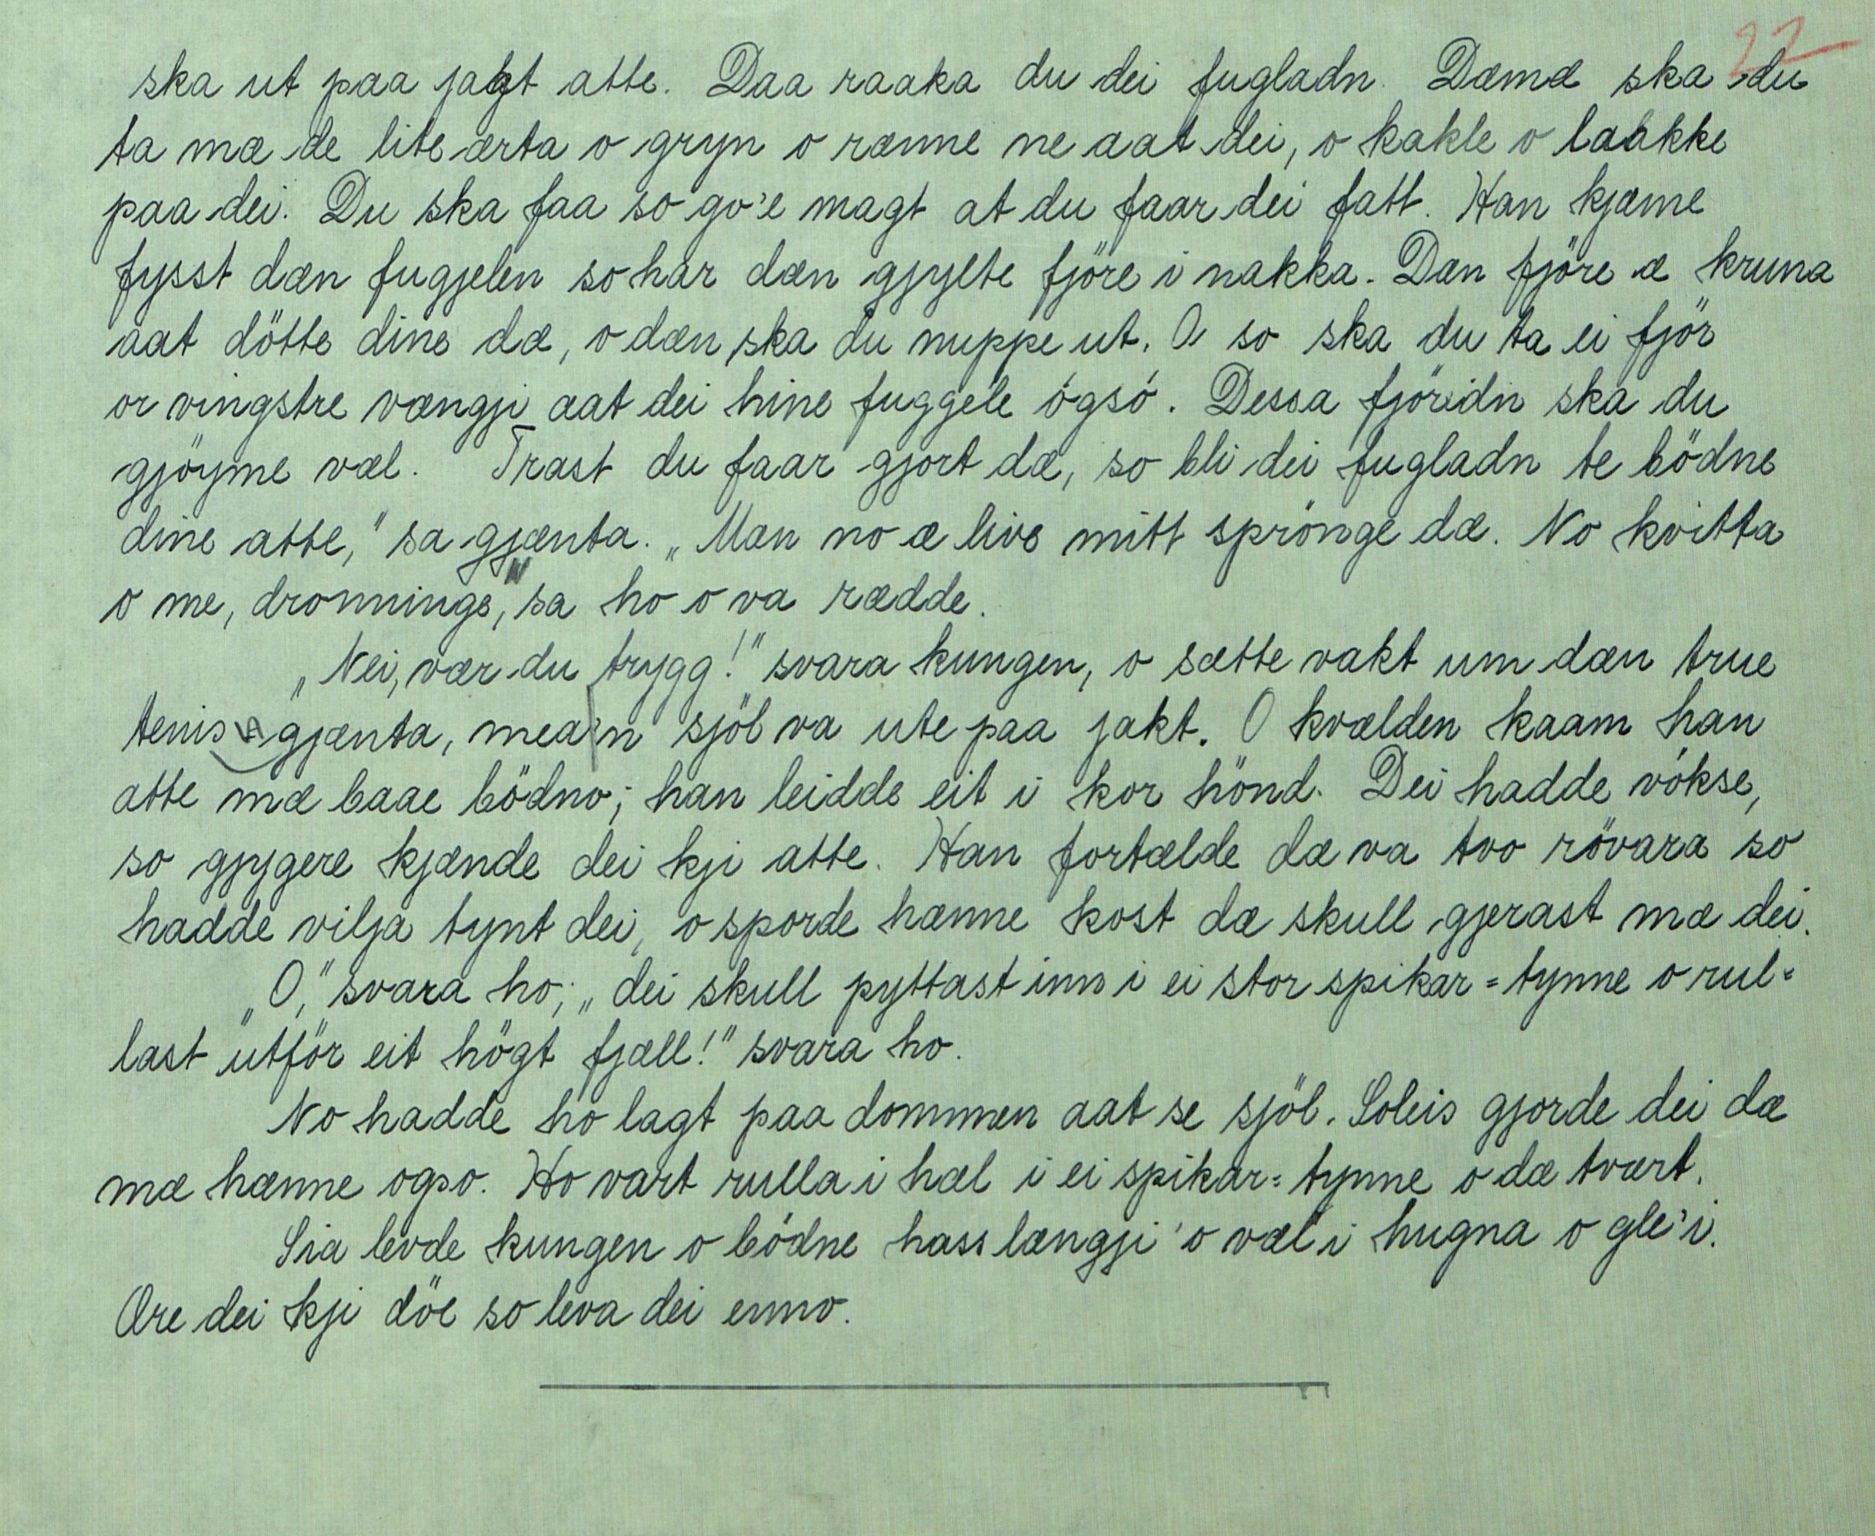 22
ska ut paa jagt atte. Daa raaka du dei fugladn. Dæmæ ska du
ta mæ de lite ærta o gryn o rænne ne aat dei, o kakle o laakke
paa dei. Du ska faa so go'e magt at du faar dei fatt. Han kjæme
fysst dæn fuggjelen so har dæn gjylte fjöre i nakka. Dæn fjöre æ kruna
aat dötte dine dæ, o dæn ska du nuppe ut. O so ska du ta ei fjör
or vingstre vængji aat dei hine fuggele ógsó. Dessa fjöridn ska du
gjöyme væl. Trast du faar gjort dæ, so bli dei fugladn te bödne
dine atte," sa gjænta. „Mæn no æ live mitt sprönge dæ. No kvitta
o me, dronninge," sa ho o va rædde.
„Nei, vær du trygg!" svara kungen, o sætte vakt um dæn true
tenis gjænta, mea'n sjöl va ute paa jakt. O kvælden kaam han
atte mæ baae bödno; han leidde eit i kor hönd. Dei hadde vókse,
so gjygere kjænde dei kji atte. Han fortælde dæ va tvo rövara so
hadde vilja tynt dei, o sporde hænne kost dæ skull gjerast mæ dei.
„O," svara ho; „dei skull pyttast inn i ei stor spikar=tynne o rul=
last utför eit högt fjæll!" svara ho.
No hadde ho lagt paa dommen aat se sjöl. Soleis gjorde dei dæ
mæ hænne ogso. Ho vart rulla i hæl i ei spikar=tynne o dæ tvært.
Sia levde kungen o bódne hass længji o væl i hugna o gle'i.
Ære dei kji döe so leva dei enno.